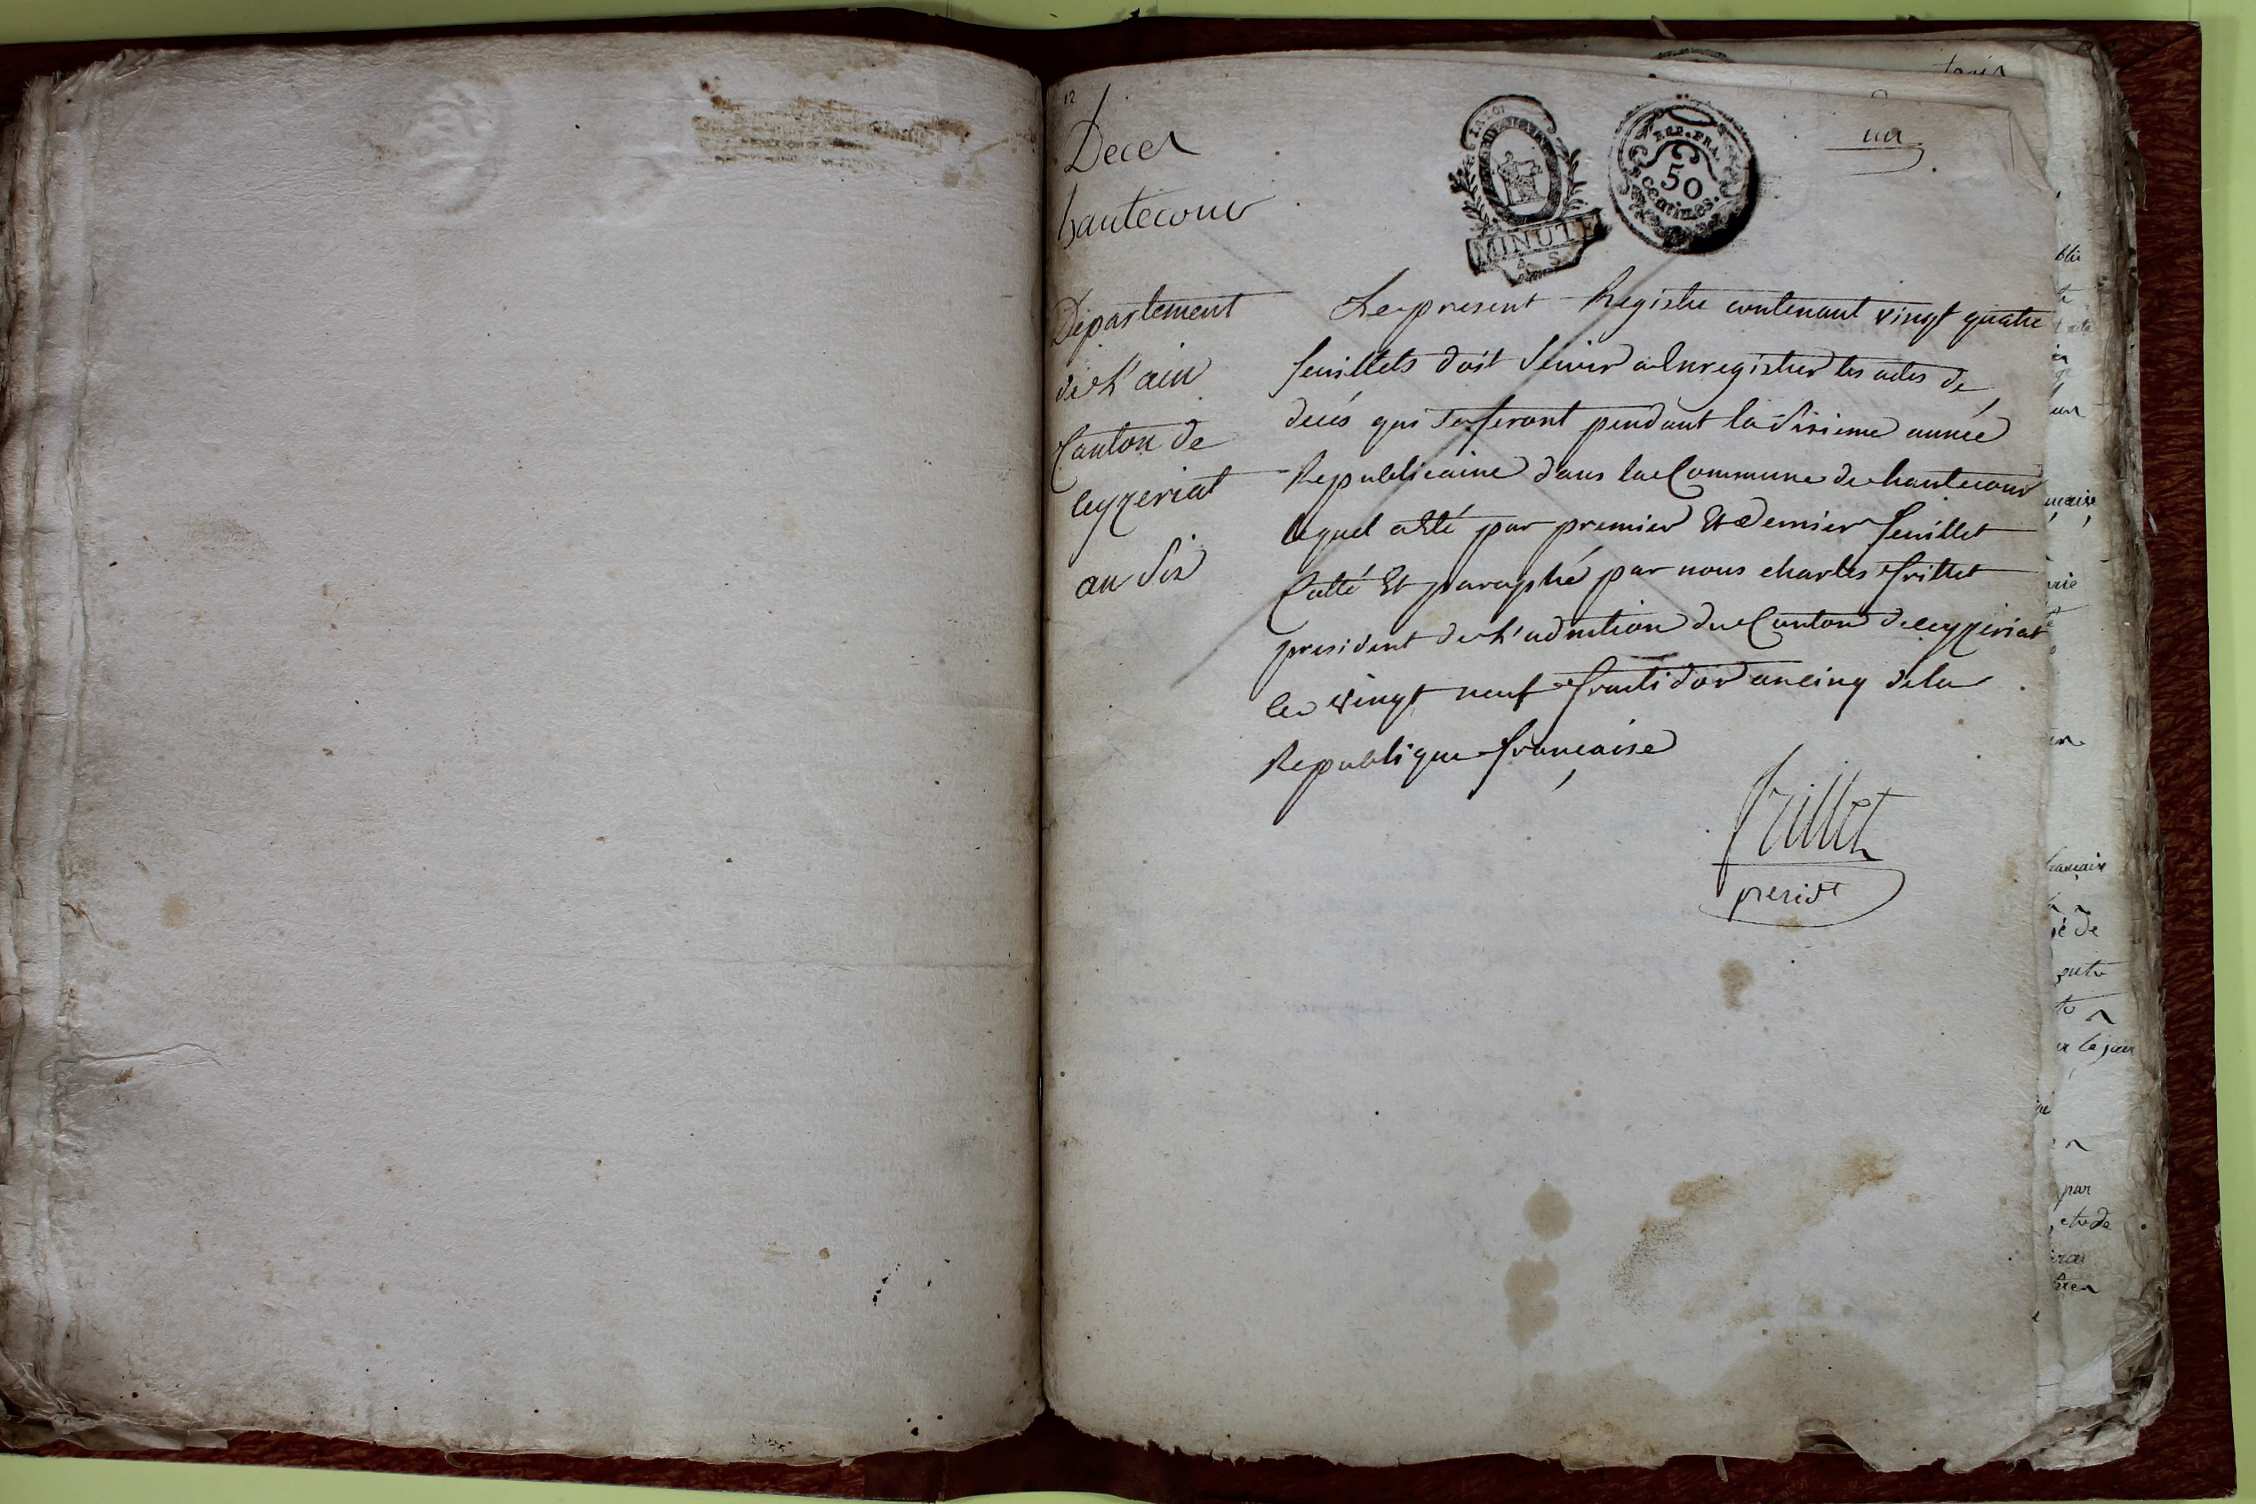 12
Deces
hautecour
un
REP. FRA.
50
centimes.
MINUTE
Département
de L'ain
Canton de
ceyzeriat
an Six
Le present Registre contenant vingt quatre
feuillets doit Servir a Enregistrer les actes de
decés qui se feront pendant la Sixieme année
Republicaine dans la Commune de hautecour
lequel a été par premier Et dernier feuillet
Cotté Et paraphé par nous charles frillet
president de L'admtion du Canton de ceyzeriat
le vingt neuf fructidor an cinq de la
Republique française
frillet
presidt